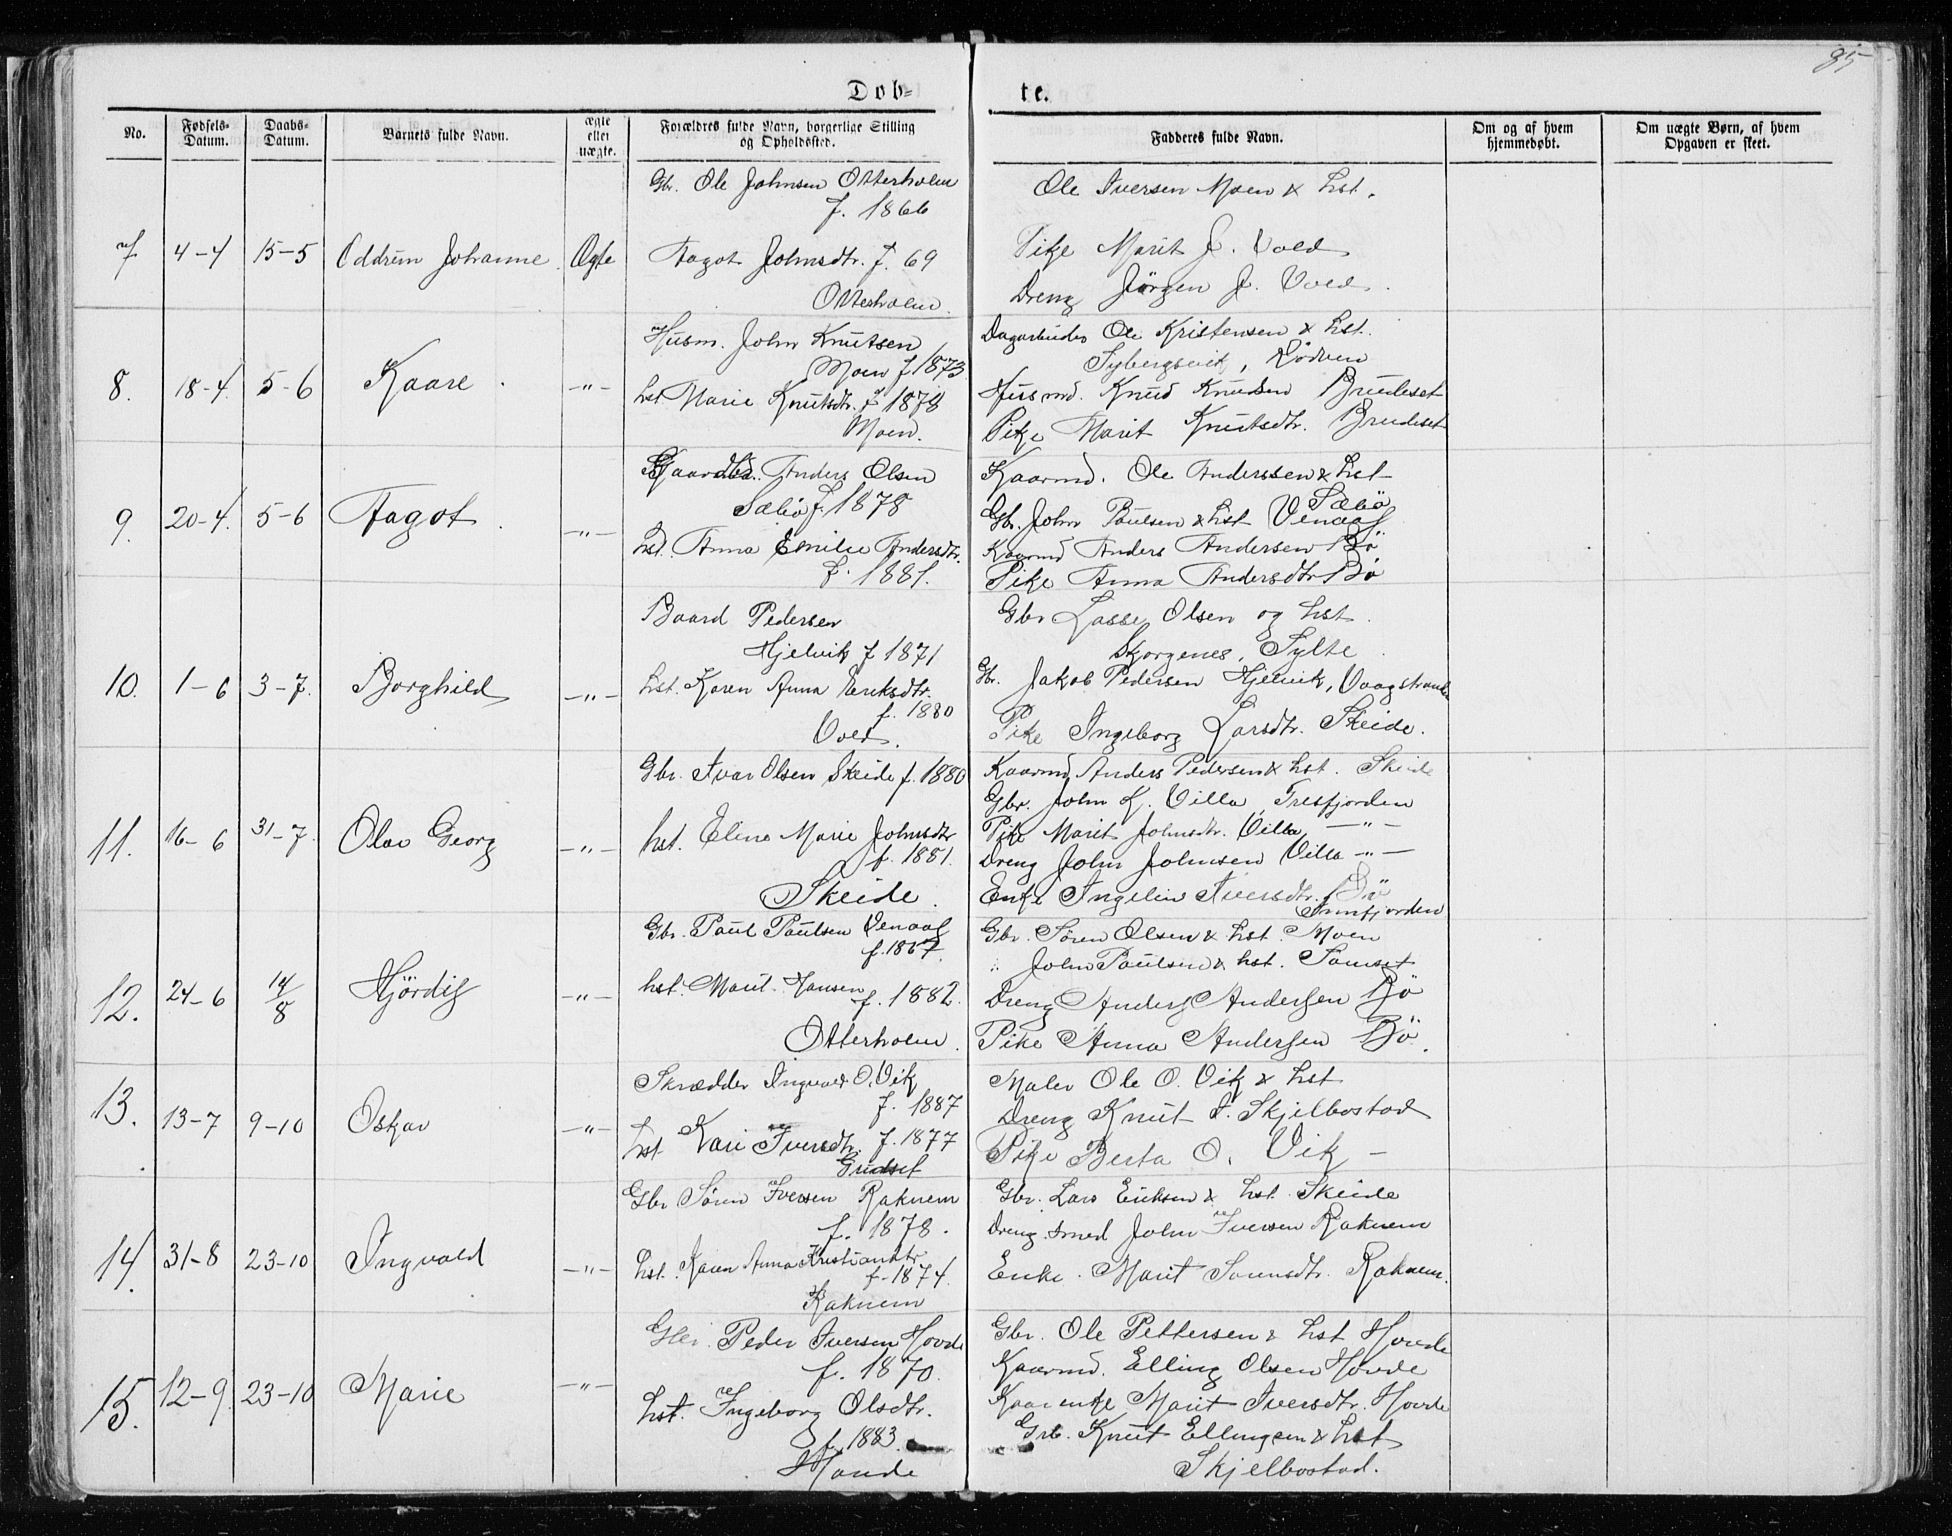 85
Døb-
te.
No.
Fødsels-Datum.
Daabs-Datum.
Barnets fulde Navn.
ægte eller uægte.
Forældres fulde Navn, borgerlige Stilling og Opholdssted.
Fadderes fulde Navn.
Om og af hvem hjemmedøbt.
Om uægte Børn, af hvem Opgaven er skeet.
7 4-4 15-5 Oddrun Johanne. Ægte
Gbr. Ole Johnsen Otterholm
f. 1866
Aagot Johnsdtr. f. 69
Otterholm.
Ole Iversen Moen & hst.
Pike Marit J. Vold
Dreng Jörgen J. Vold.
8. 18-4. 5-6 Kaare. -"-
Husm. John Knutsen
Moen f 1873
hst Marie Knutsdtr. f. 1878
Moen.
Ole Kristensen & hst.
Rödven
Husmd. Knud Knudsen Brudeset
Pike Marit Knutsdtr. Brudeset
9. 20-4. 5-6 Aagot. -"-
Anders Olsen
Sæbö f. 1878
hst. Anna Emilie Andersdtr.
f. 1881.
Kaarmd. Ole Anderssen & hst
Sæbö
Gbr. John Paulsen & hst Venaas
Kaarmd Anders Andersen Bö
Pike Anna Andersdtr Bö
10. 1-6 3-7. Borghild -"-
Baard Pedersen
Hjelvik f 1871
hst. Karen Anna Eriksdtr.
f. 1880
Vold.
Gbr Lasse Olsen og hst.
Skorgenes, Sylte.
Gbr. Jakob Pedersen Hjelvik, Vaagstranden
Pike Ingeborg Larsdtr. Skeide.
11. 16-6 31-7. Olav Georg -"-
Gbr. Ivar Olsen Skeide f. 1880
hst. Eline Marie Johnsdtr
f. 1881.
Skeide.
Kaarmd Anders Pedersen & hst. Skeide
Gbr. John L. Villa, Tresfjorden
Pike Marit Johnsdtr. Villa -"-
Dreng John Johnsen Villa -"-
Enke Ingelin Iversdtr. Bö
12. 24-6 14/8 Hjördis -"-
Gbr. Paul Paulsen Venaas
f. 1867.
hst. Marit Hansen
f. 1882.
Otterholm.
Gbr. Sören Olsen & hst. Moen
" John Paulsen & hst.
Dreng Anders Andersen Bö
Pike Anna Andersen Bö.
13. 13-7 9-10 Oskar -"-
Skrædder Ingvald O. Vik
f. 1887
hst Kari Iversdtr. f. 1877
Gridset
Maler Ole O. Vik & hst
Dreng Knut I. Skjelbostad
Pike Berta O. Vik -
14. 31-8 23-10 Ingvald -"-
Gbr Sören Iversen Raknem
f. 1878.
hst. Karen Anna Kristiansdtr.
f. 1874.
Raknem
Gbr. Lars Eriksen & hst. Skeide
Dreng. Smed John Iversen Raknem
Enke. Marit Sörensdtr. Raknem.
15. 12-9. 23-10 Marie -"-
Gbr. Peder Iversen Hovde
f. 1870.
hst. Ingeborg Olsdtr.
f. 1883.
Hovde
Gbr. Ole Pettersen & hst Hovde
Kaarmd. Elling Olsen Hovde
Kaarenke Marit Iversdtr. Hovde
Gbr. Knut Ellingsen & hst
Skjelbostad.